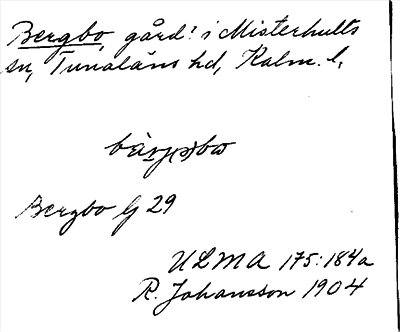 Bergbo, gård? i Misterhults
sn, Tunaläns hd, Kalm. l.
Bergbo G 29
ULMA 175:184a
R. Johansson 1904